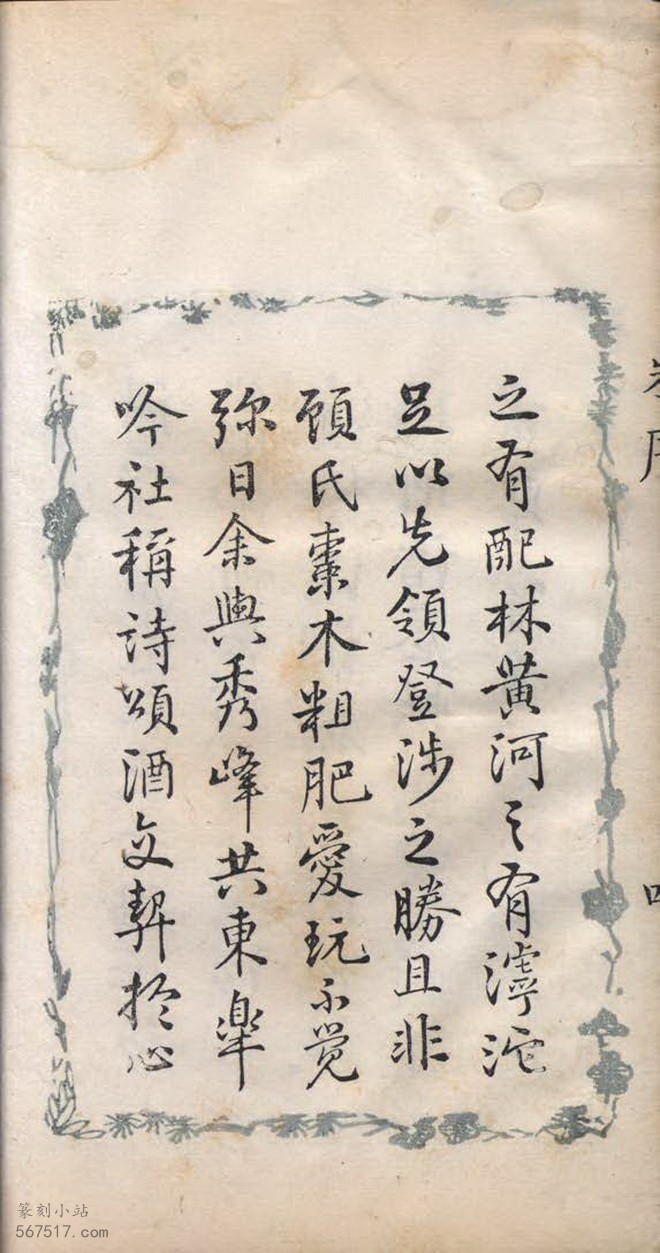 之有配林黄河之有滹沱
足以先領登涉之勝且非
顧氏棗木粗肥愛玩不觉
弥日余與秀峰共東皋
吟社稱詩頌酒交契扵心
四
篆刻小站
567517.com